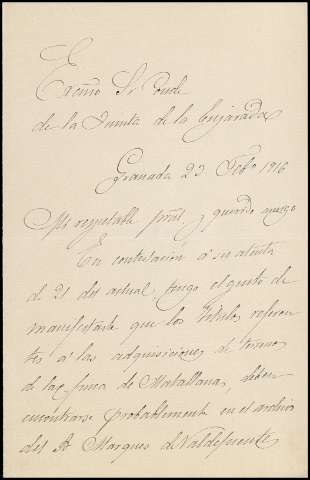 Excmo Sr Conde
de la Quinta de la Enjarada
Granada 23 Febo 1916
Mi respetable y querido amigo
En contestación á su atenta
del 21 del actual tengo el gusto de
manifestarle que los títulos referen
tes á las adquisiciones de terreno
de la finca de Matallana, deben
encontrarse probablemente en el archivo
del Sr Marques de Valdefuentes